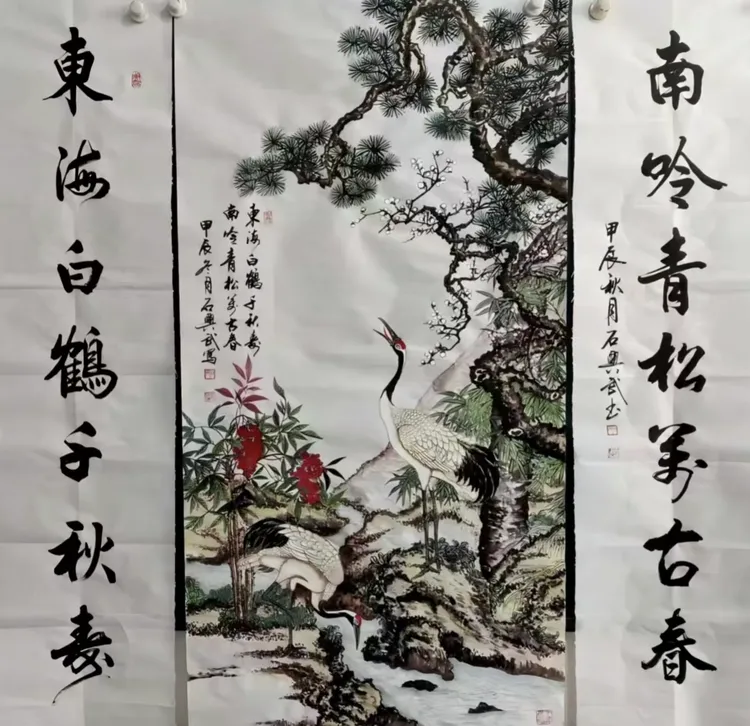 東海白鶴千秋壽
東海白鶴千秋壽
南吟青松萬古春
甲辰冬月石興武寫
南吟青松萬古春
甲辰秋月石興武书